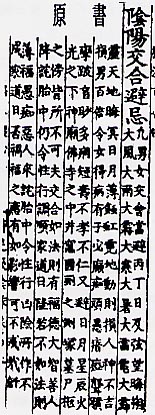 書原
陰陽交合避忌
男女交會當避丙丁日及弦望晦朔
大風大雨大霧大寒大暑大雷電大霹
靂天地晦冥日月薄蝕虹電地動則損人神不吉
損男百倍令女得病有子必癲癡頑愚瘖瘂聾聵
攣跛盲眇多病短壽不孝不仁又避日月星辰火
光之下神廟佛寺之中井竈圊厠之側塚墓尸柩
之傍皆所不可夫交合如法則有福德大智善人
降託胎中仍令性行調順家道日隆若不如法則
薄福愚癡惡人來託胎中令性行凶險所作不
成家道日否禍福之應有如影響可不戒哉